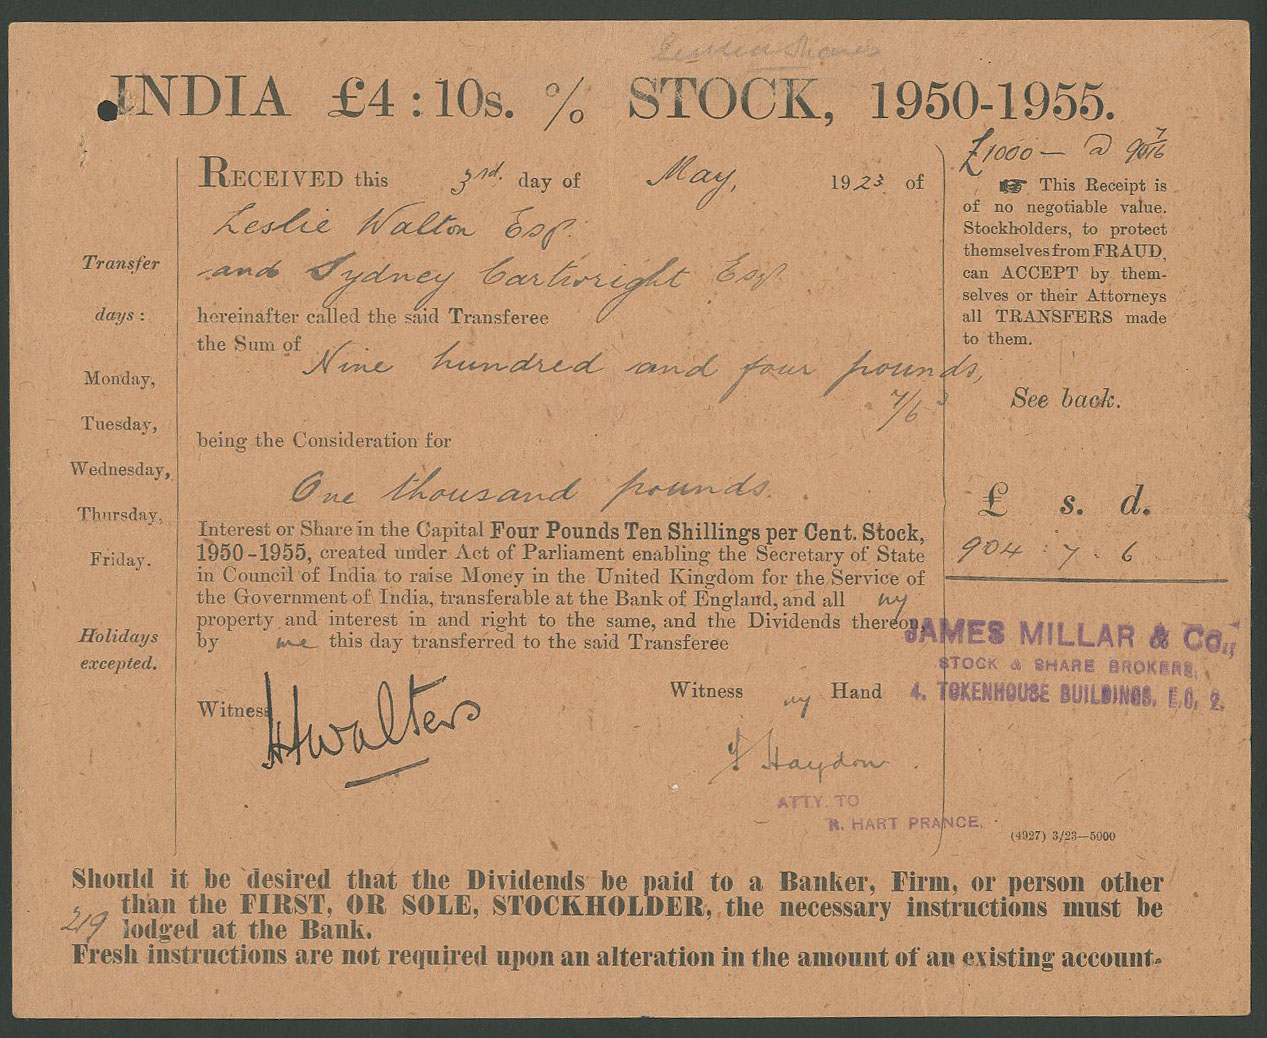 INDIA £4 : 10s. % STOCK, 1950-1955.
£1000 — @ 90 7/16
RECEIVED this 3rd. day of May, 1923 of
Leslie Walton Esq.
and Sydney Cartwright Esq.
hereinafter called the said Transferee
the Sum of Nine hundred and four pounds,
7/6
being the Consideration for
One thousand pounds.
Interest or Share in the Capital Four Pounds Ten Shillings per Cent. Stock,
1950-1955, created under Act of Parliament enabling the Secretary of State
in Council of India to raise Money in the United Kingdom for the Service of
the Government of India, transferable at the Bank of England, and all my
property and interest in and right to the same, and the Dividends thereon,
by me this day transferred to the said Transferee
Witness my Hand
Witness HWalters
Haydon
ATTY. TO
R. HART PRANCE.
Transfer
days:
Monday,
Tuesday,
Wednesday,
Thursday,
Friday.
Holidays
excepted.
☞ This Receipt is
of no negotiable value.
Stockholders, to protect
themselves from FRAUD,
can ACCEPT by them-
selves or their Attorneys
all TRANSFERS made
to them.
See back.
£ s. d.
904 : 7 . 6
JAMES MILLAR & Co.,
STOCK & SHARE BROKERS,
4, TOKENHOUSE BUILDINGS, E.C. 2.
(4927) 3/23—5000
Should it be desired that the Dividends be paid to a Banker, Firm, or person other
than the FIRST, OR SOLE, STOCKHOLDER, the necessary instructions must be
219 lodged at the Bank.
Fresh instructions are not required upon an alteration in the amount of an existing account.